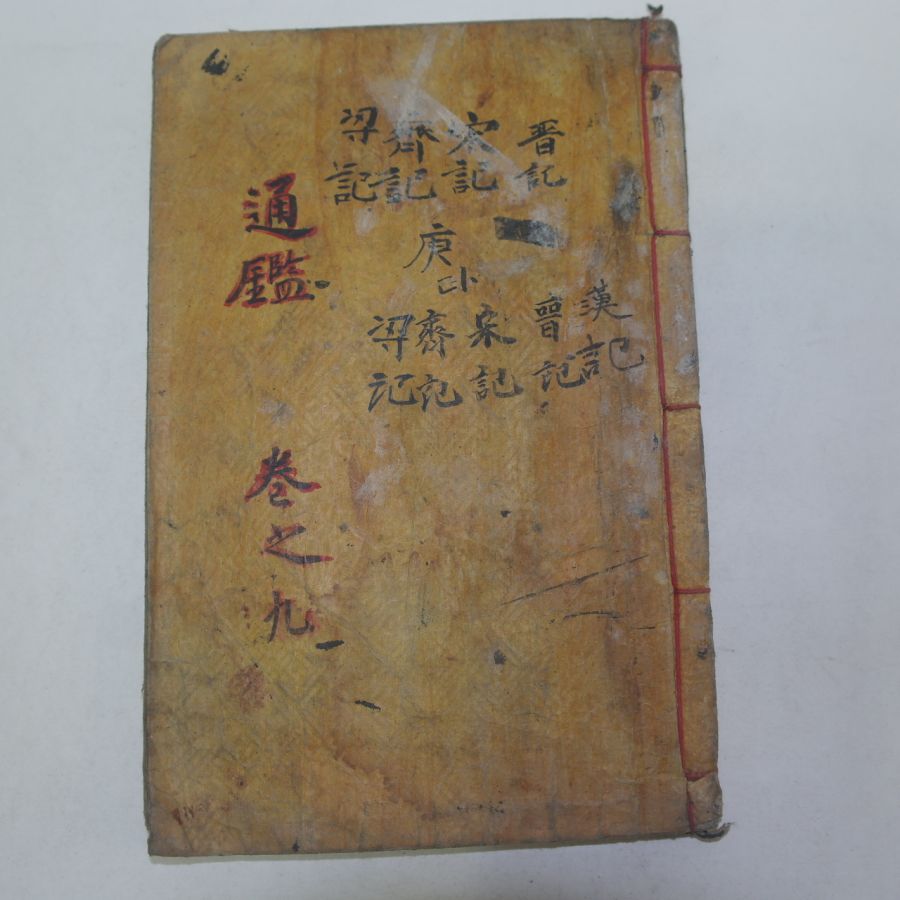 晋記
宋記
齊記
梁記
庚
漢記
晉記
宋記
齊記
梁記
通鑑
卷之九